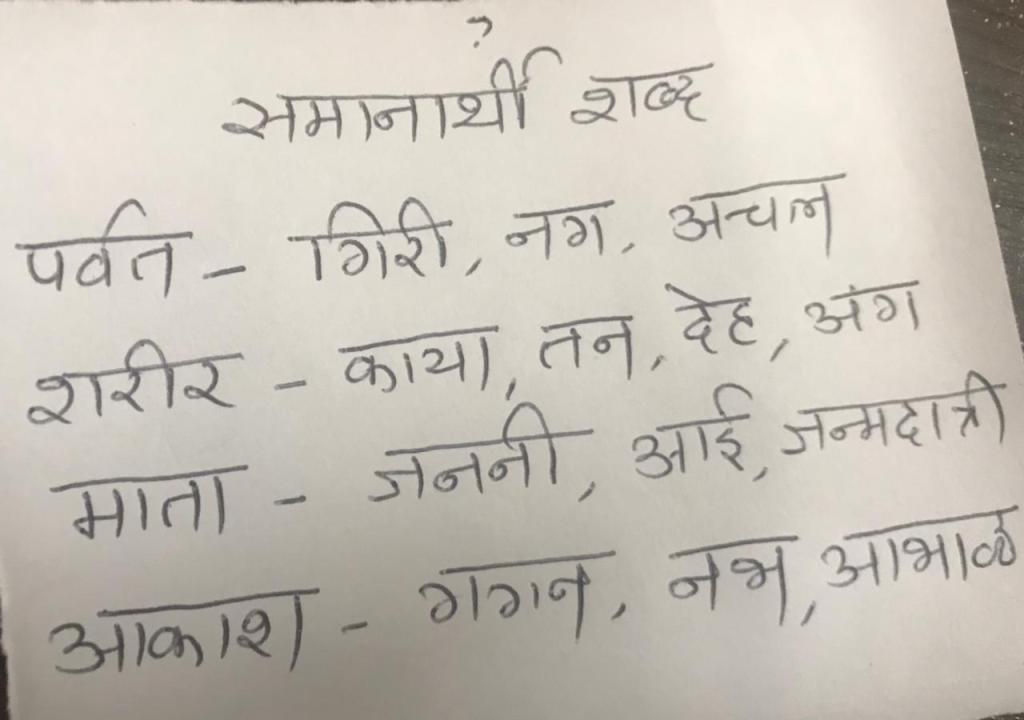 ?
समानार्थी शब्द
पर्वत - गिरी, नग, अचल
शरीर - काया, तन, देह, अंग
माता - जननी, आई, जन्मदात्री
आकाश - गगन, नभ, आभाळ